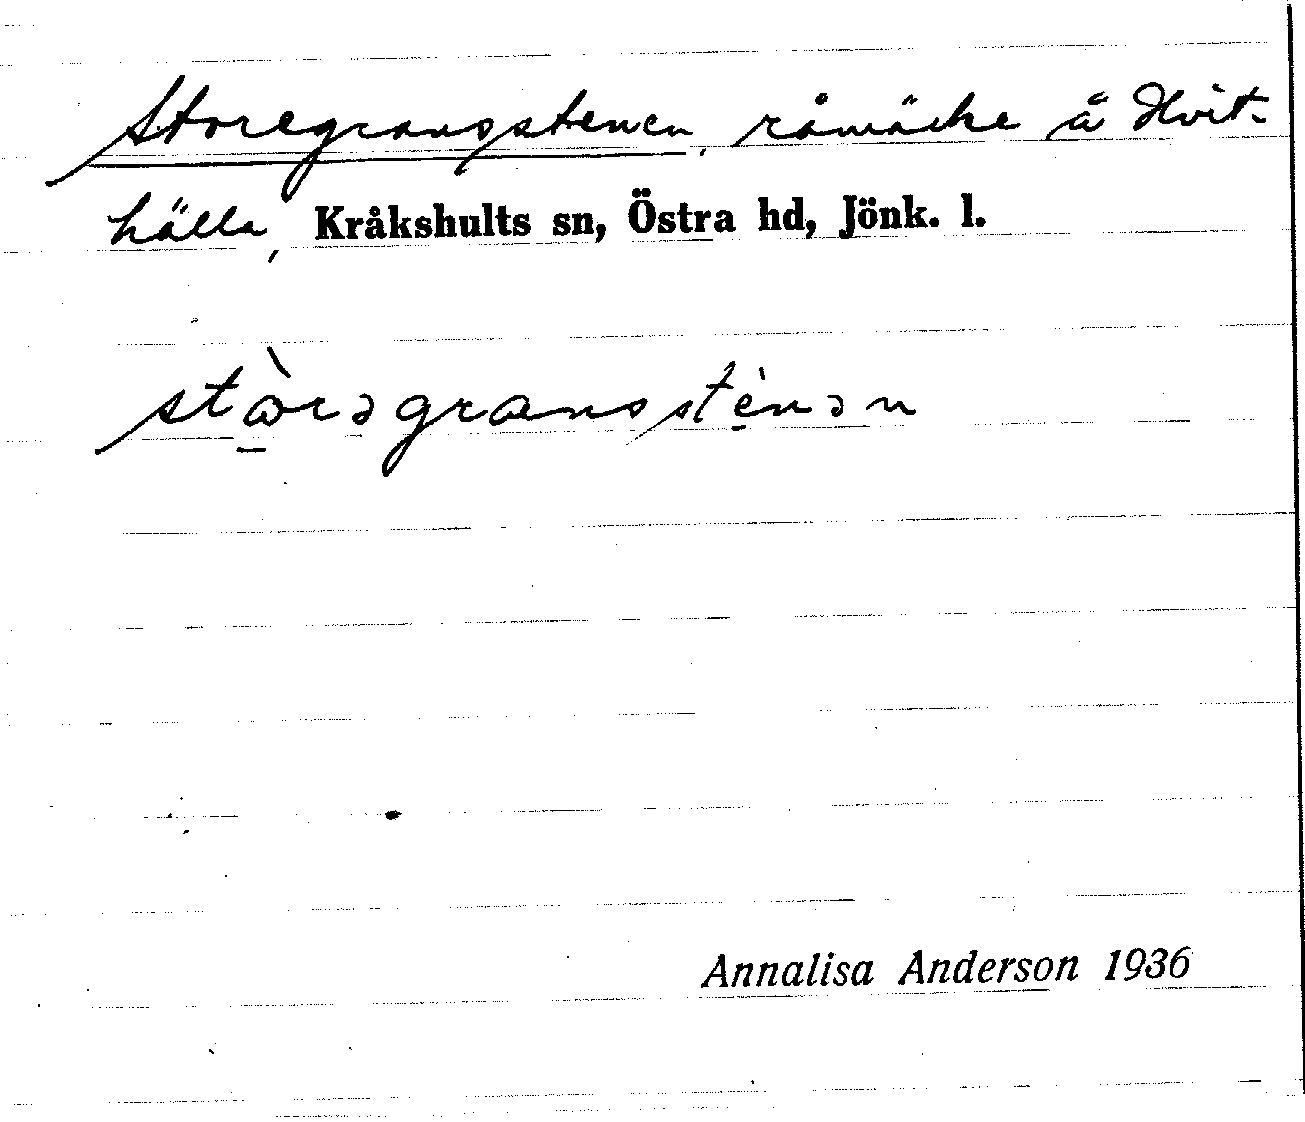 Storegrangstenen, råmärke å Hvit-
hälla, Kråkshults sn, Östra hd, Jönk. l.
Annalisa Anderson 1936